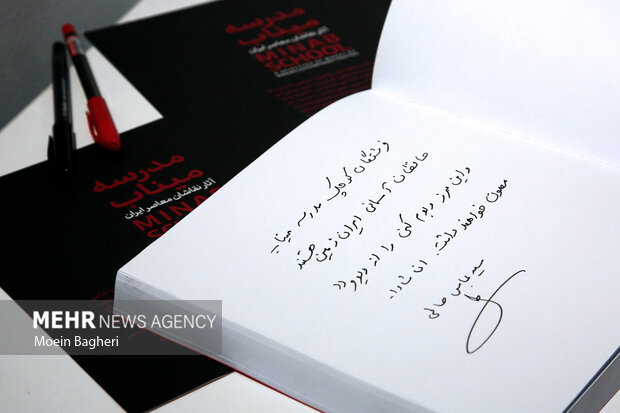 مدرسه
میناب
آثار نقاشان معاصر ایران
MINAB
SCHOOL
مدرسه
میناب
آثار نقاشان معاصر ایران
MINAB
فرشتگان کوچک مدرسه میناب
حافظان آسمانی ایران زمین هستند
و این مرز و بوم کهن را از دیو و دد
مصون خواهند داشت. ان شاءا...
سید عباس صالحی
MEHR NEWS AGENCY
Moein Bagheri